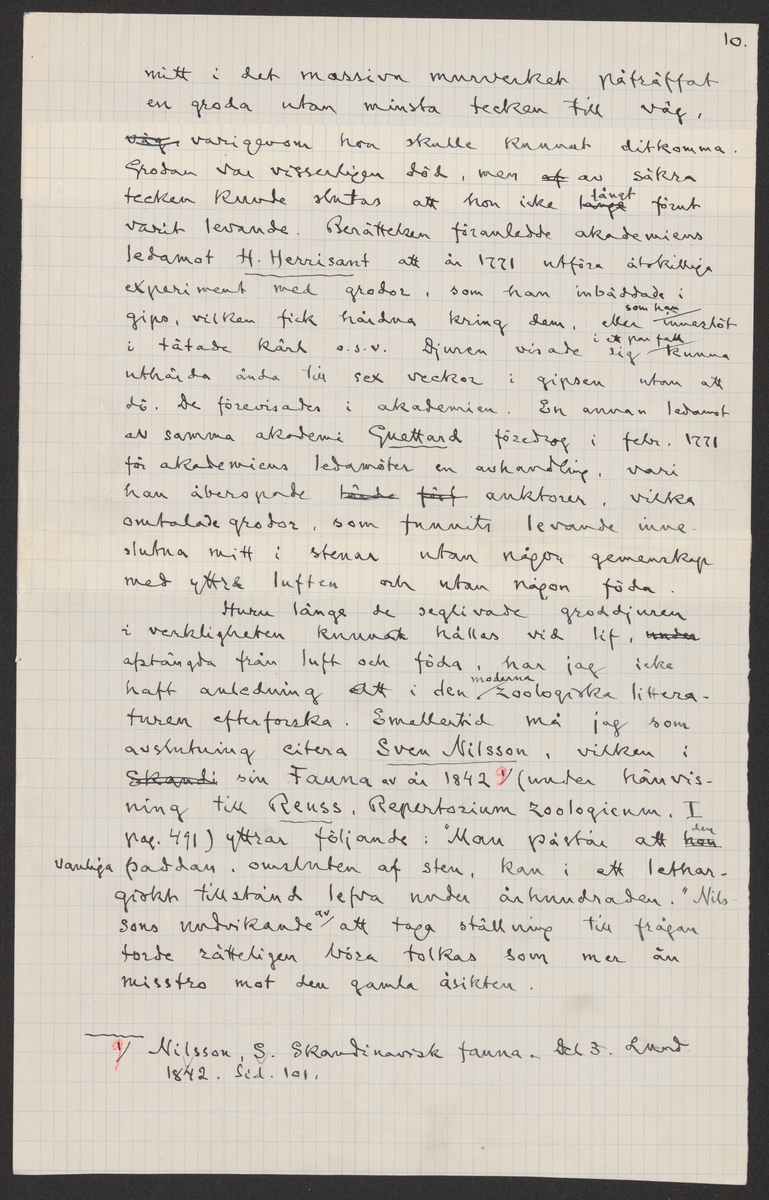 10.
mitt i det massiva murverket påträffat
en groda utan minsta tecken till väg,
väg, varigenom hon skulle kunnat ditkomma.
Grodan var visserligen död, men af av säkra
tecken kunde slutas att hon icke länge långt förut
varit levande. Berättelsen föranledde akademiens
ledamot H. Herrisant att år 1771 utföra åtskilliga
experiment med grodor, som han inbäddade i
gips, vilken fick hårdna kring dem, eller som han inneslöt
i tätade kärl o.s.v. Djuren visade sig i ett par fall kunna
uthärda ända till sex veckor i gipsen utan att
dö. De förevisades i akademien. En annan ledamot
av samma akademi Guettard föredrog i febr. 1771
för akademiens ledamöter en avhandling, vari
han åberopade lärde förf auktorer, vilka
omtalade grodor, som funnits levande inne-
slutna mitt i stenar utan någon gemenskap
med yttre luften och utan någon föda.
Huru länge de seglivade groddjuren
i verkligheten kunnat hållas vid lif, under
afstängda från luft och föda, har jag icke
haft anledning att i den moderna zoologiska littera-
turen efterforska. Emellertid må jag som
avslutning citera Sven Nilsson, vilken i
Skandi sin Fauna av år 1842 1/ (under hänvis-
ning till Reuss, Repertorium zoologicum, I
pag. 491) yttrar följande: "Man påstår att hon den
vanliga paddan, omsluten af sten, kan i ett lethar-
giskt tillstånd lefva under århundraden." Nils-
sons undvikande av att taga ställning till frågan
torde rätteligen böra tolkas som mer än
misstro mot den gamla åsikten.
1/ Nilsson, S. Skandinavisk fauna. Del 3. Lund
1842. Sid. 101.